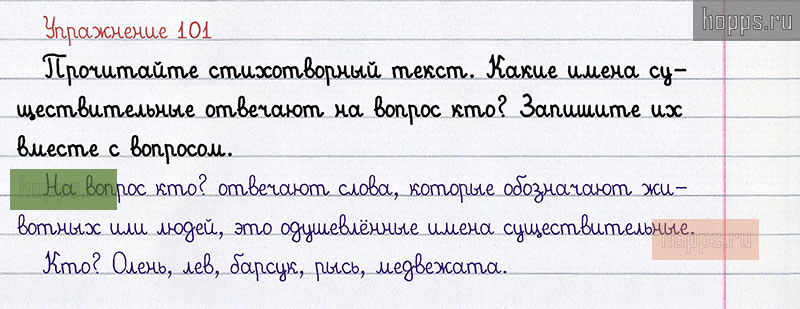 hopps.ru
Упражнение 101
Прочитайте стихотворный текст. Какие имена су-
ществительные отвечают на вопрос кто? Запишите их
вместе с вопросом.
На вопрос кто? отвечают слова, которые обозначают жи-
вотных или людей, это одушевлённые имена существительные.
hopps.ru
hopps.ru
Кто? Олень, лев, барсук, рысь, медвежата.